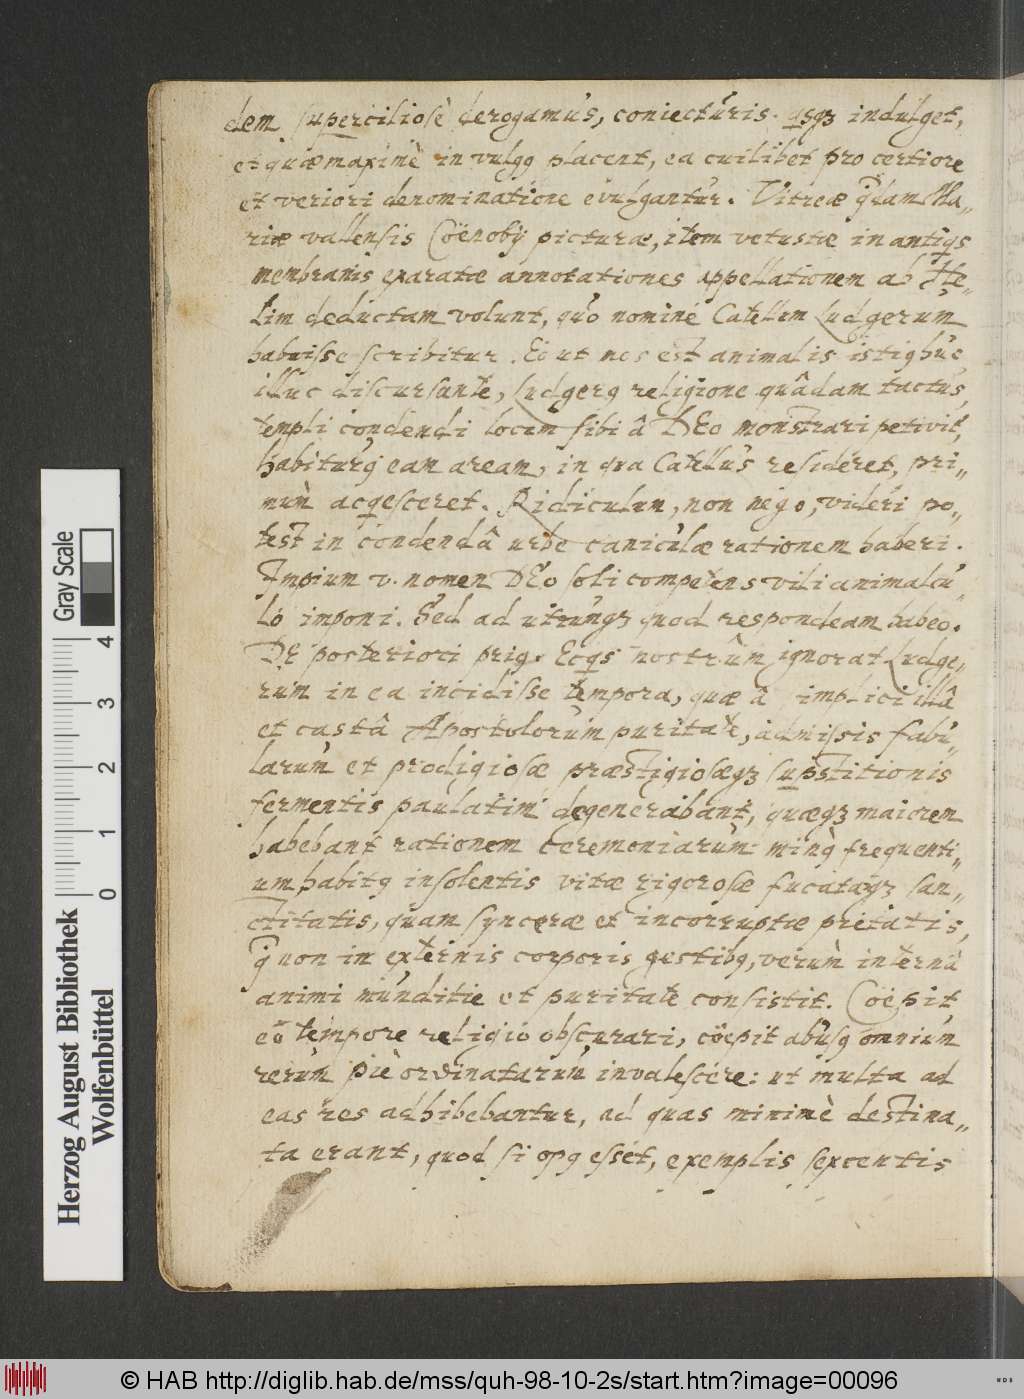 dem superciliosè derogamus, coniecturis. qsqȝ indulget,
et quæ maximè in vulgꝰ placent, ea cuilibet pro certiore
et veriori denominatione evulgantur. Vitreæ q̃dam Ma„
riæ vallensis Cöenobÿ picturæ, item vetustæ in antiqs
membranis exaratæ annotationes appellationem ab He„
lim deductam volunt, quo nominé Catellum Ludgerum
habuisse scribitur. Eò ut nos est animalis istic huc
illuc discursante, Ludgerꝰ religione quâdam tactus,
templi condendi locum sibi â DEo monstrari petivit,
habiturꝰ eam aream, in qua Catellus resideret, pri„
mùm acqesceret. Ridiculum, non négo, videri po„
test in condendâ urbe caniculæ rationem haberi.
Impium v. nomen DEo soli competens vili animalcu„
lo imponi. Sed ad utrumqȝ quod respondeam habeo.
DE posteriori priꝰ. Ecqs nostrùm ignorat Ludge„
rum in ea incidisse tempora, quæ â implici illâ
et castâ Apostolorum puritate, admissis fabu„
larum et prodigiosæ præstigiosæqȝ supstitionis
fermentis paulatim degenerabant, quæqȝ maiorem
habebant rationem ceremoniarum minꝰ frequenti„
um habitꝰ insolentis vitæ rigorosæ fucatæqȝ san„
ctitatis, quam synceræ et incorruptæ pietatis,
q̃ non in externis corporis gestibꝰ, verùm internâ
animi munditie et puritate consistit. Cöepit
eo tempore religio obscurari, cöepit abusꝰ omnium
rerum piè ordinatarum invalescere: ut multa ad
eas res adhibebantur, ad quas minimè destina„
ta erant, quod si opꝰ esset, exemplis sexcentis
Herzog August Bibliothek
Wolfenbüttel
Gray Scale
0 1 2 3 4
© HAB http://diglib.hab.de/mss/quh-98-10-2s/start.htm?image=00096